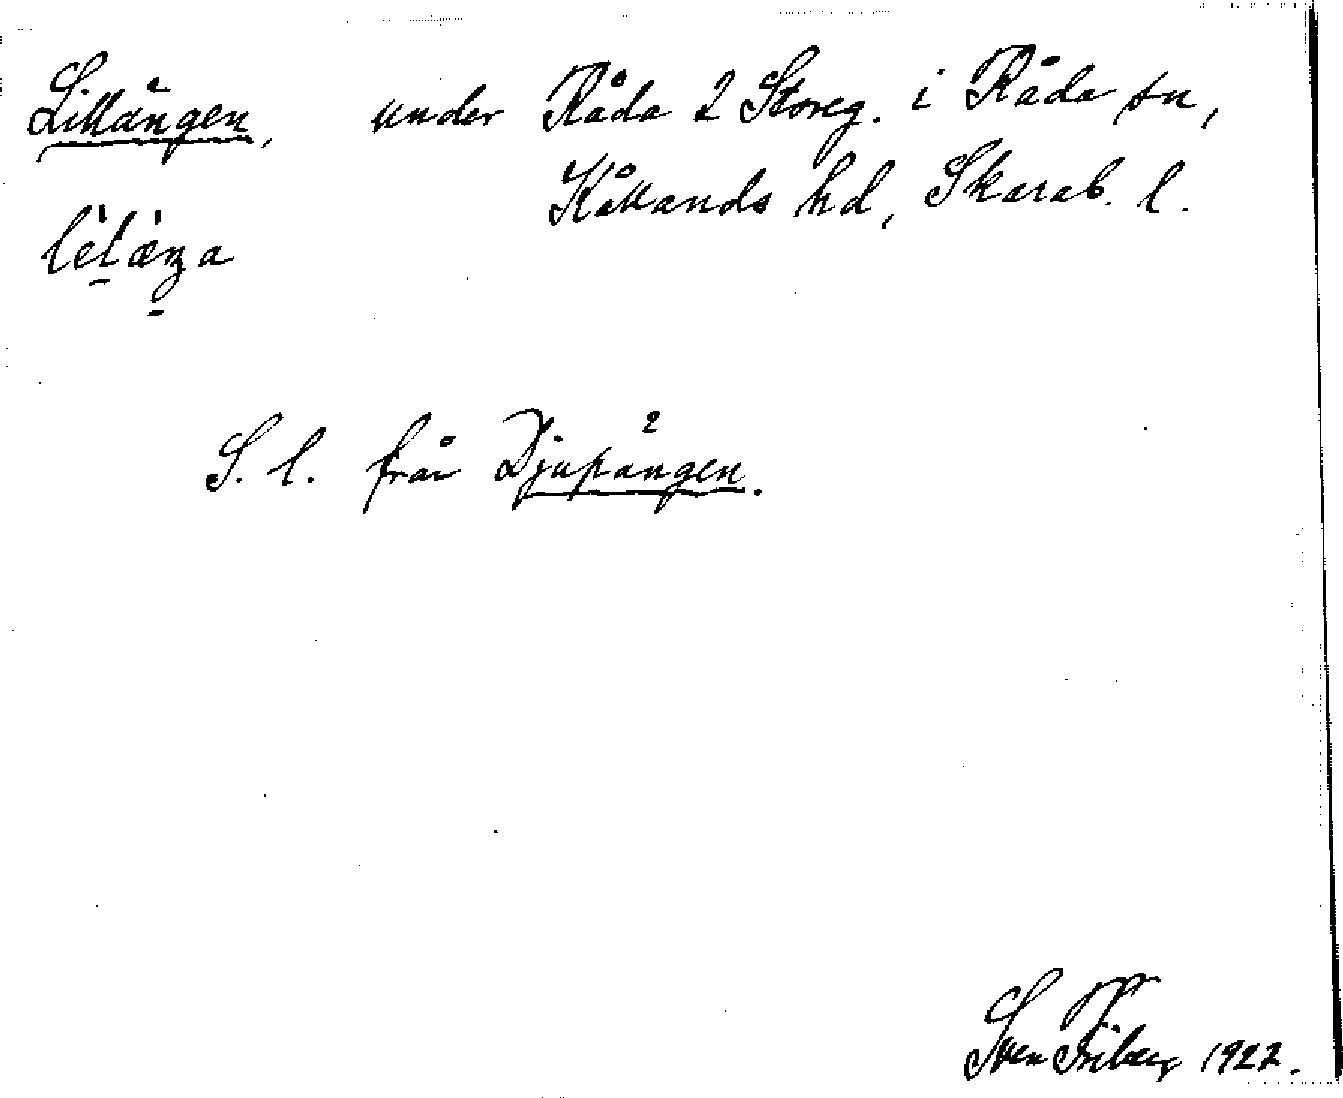 Lillängen, under Råda 2 Storeg. i Råda sn,
Kållands hd, Skarab. l.
S. l. från Djupängen.
Sven Friberg 1922.